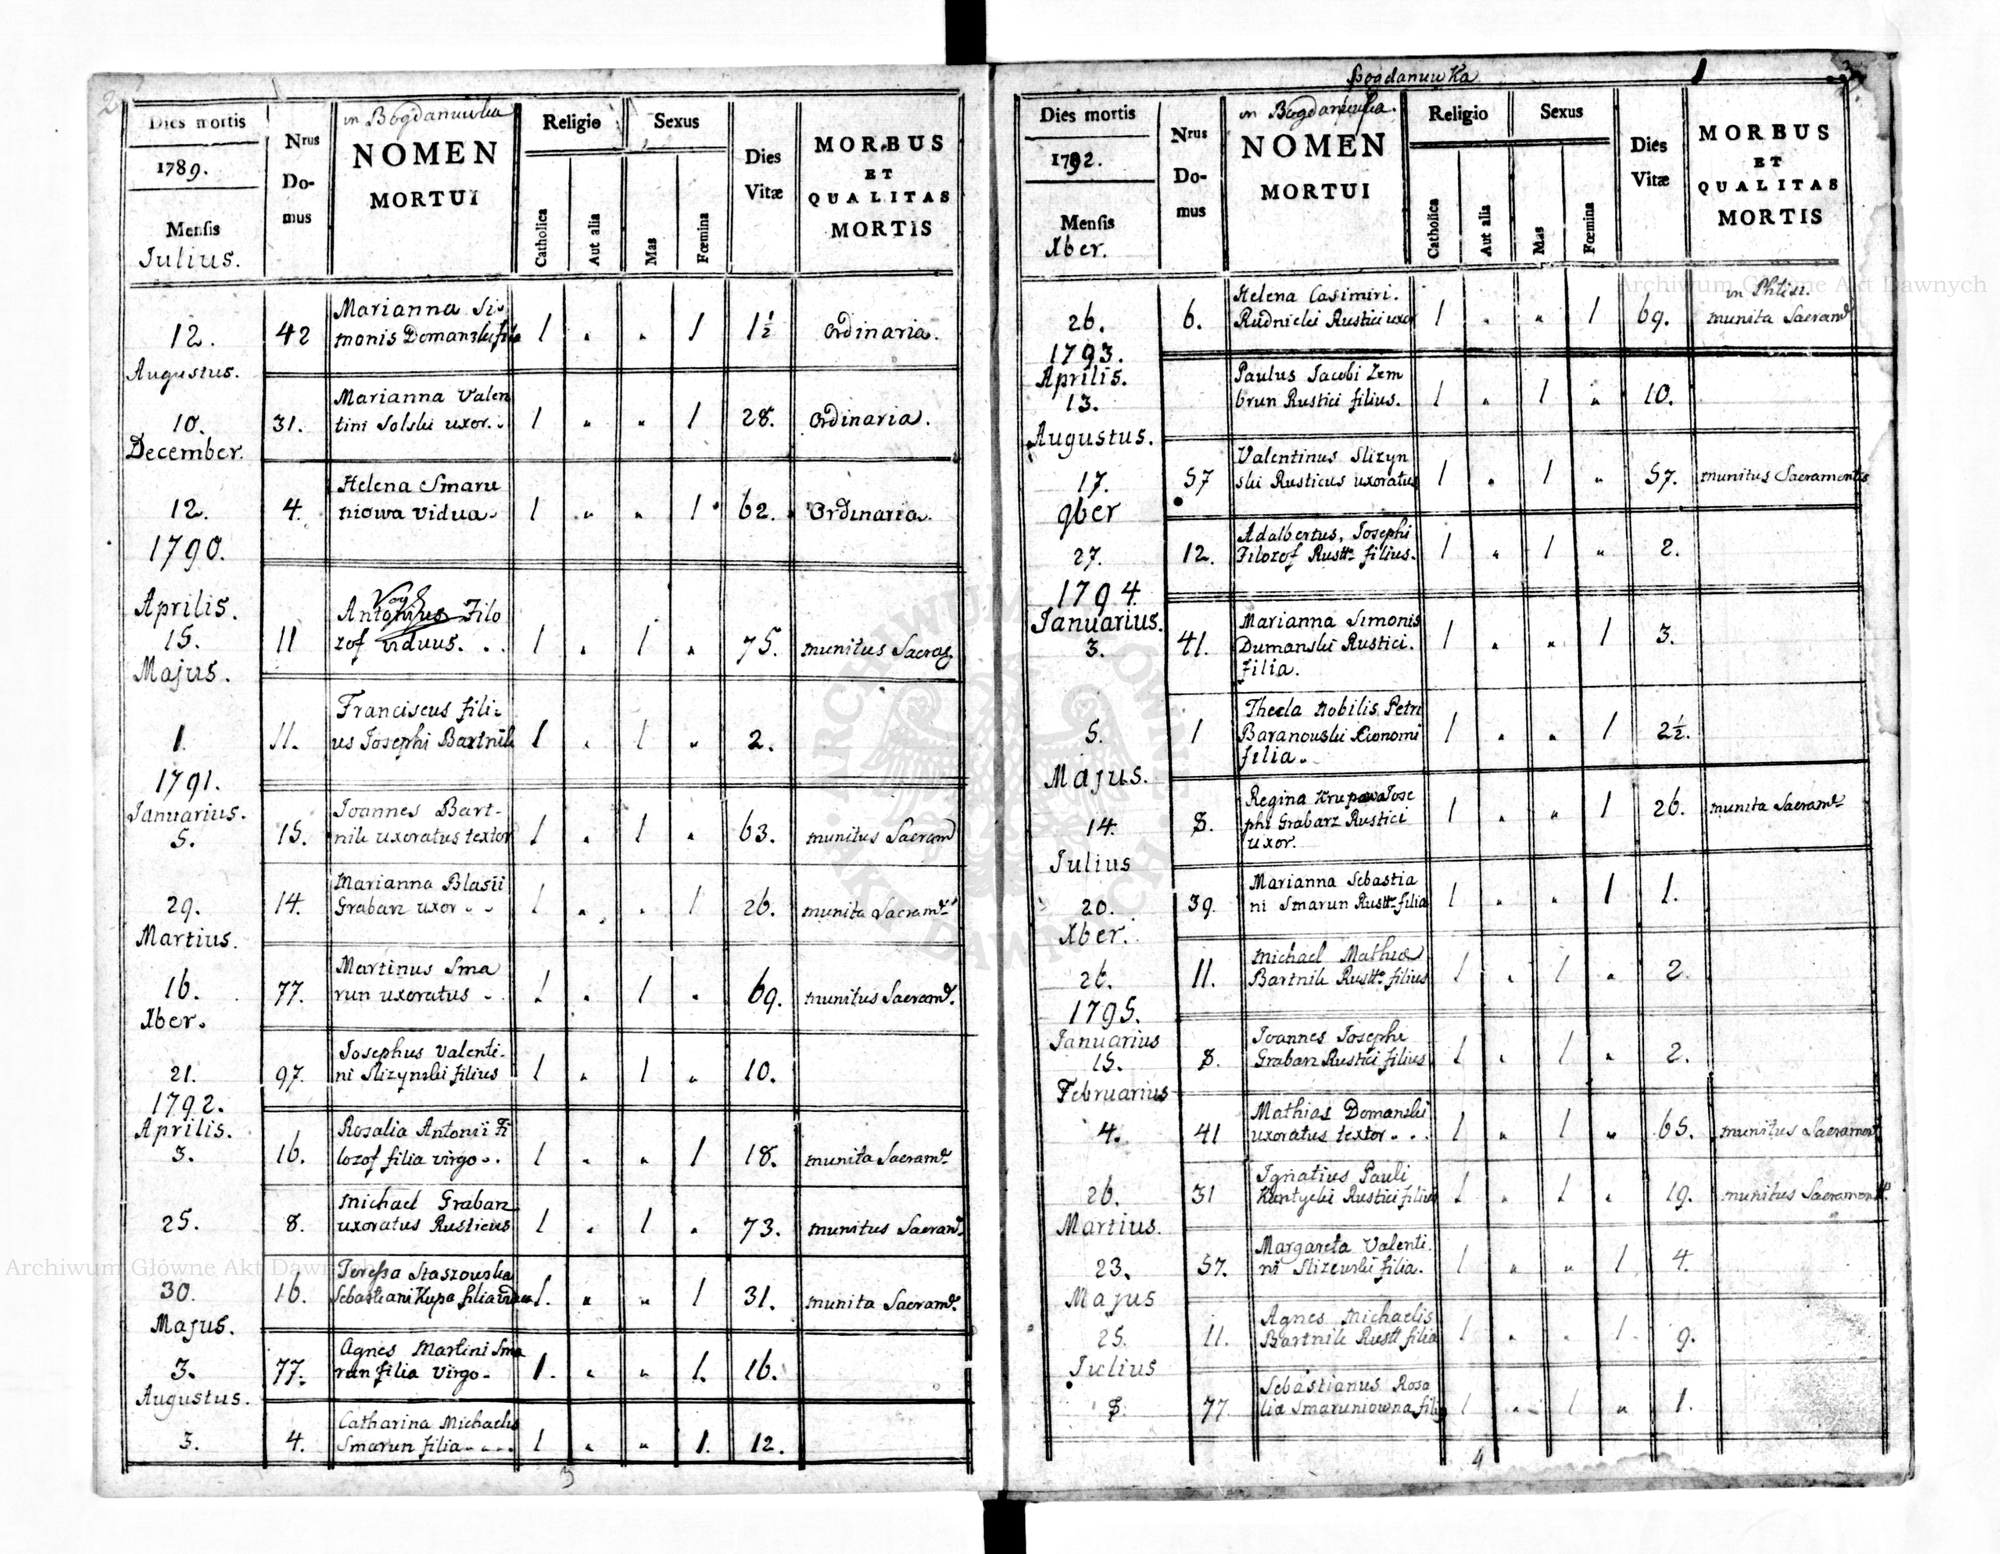 2
Dies mortis
1789.
Mensis
Julius.
Nrus
Do-
mus
in Bogdanuwka
NOMEN
MORTUI
Religio
Catholica
Aut alia
Sexus
Mas
Fœmina
Dies
Vitæ
MORBUS
ET
QUALITAS
MORTIS
Marianna Si-
12. 42 monis Domanski filia 1 " " 1 1½ Ordinaria.
Augustus.
Marianna Valen
10. 31. tini Solski uxor. 1 " " 1 28. Ordinaria.
December.
Helena Smaru
12. 4. niowa vidua. 1 " " 1 62. Ordinaria.
1790.
Aprilis.
Antonius Filo
15. 11 zof viduus. . . 1 " 1 " 75. munitus Sacra
Majus.
Franciscus fili-
1. 11. us Josephi Bartnik 1 " 1 " 2.
1791.
Januarius.
Joannes Bart-
5. 15. nik uxoratus textor 1 " 1 " 63. munitus Sacram
Marianna Blasii
29. 14. Grabarz uxor . . 1 " " 1 26. munita Sacram.
Martius.
Martinus Sma
16. 77. run uxoratus . . 1 " 1 " 69. munitus Sacram.
Xber.
Josephus Valenti-
21. 97. ni Slizynski filius 1 " 1 " 10.
1792.
Aprilis.
Rosalia Antonii Fi
3. 16. lozof filia virgo. . 1 " " 1 18. munita Sacram.
Michael Grabarz
25. 8. uxoratus Rusticus 1 " 1 " 73. munitus Sacram.
Teressa Staszowska
30. 16. Sebastiani Kupa filia 1. " " 1 31. munita Sacram.
Majus.
Agnes Martini Sma
3. 77. run filia Virgo. 1. " " 1. 16.
Augustus.
Catharina Michaelis
3. 4. Smarun filia. . . . 1 " " 1. 12.
3
Bogdanuwka
1
Dies mortis
1792.
Mensis
Xber.
Nrus
Do-
mus
in Bogdanuwka.
NOMEN
MORTUI
Religio
Catholica
Aut alia
Sexus
Mas
Fœmina
Dies
Vitæ
MORBUS
ET
QUALITAS
MORTIS
Helena Casimiri. in Phtisi.
26. 6. Rudnicki Rustici uxor 1 " " 1 69. munita Sacram
1793.
Aprilis.
Paulus Jacobi Zem
13. brun Rustici filius. 1 " 1 " 10.
Augustus.
Valentinus Slizyn
17. 57 ski Rusticus uxoratus 1 " 1 " 57. munitus Sacramentis
9ber
Adalbertus, Josephi
27. 12. Filozof Rustt. filius. 1 " 1 " 2.
1794.
Januarius.
Marianna Simonis
3. 41. Dumanski Rustici. 1 " " 1 3.
filia.
Thecla Nobilis Petri
5. 1 Baranouski Economi 1 " " 1 2½.
filia.
Majus.
Regina Krupowa Jose
14. 8. phi Grabarz Rustici 1 " " 1 26. munita Sacram.
uxor.
Julius
Marianna Sebastia
20. 39. ni Smarun Rustt. filia 1 " " 1 1.
Xber.
Michael Mathiæ
26. 11. Bartnik Rustt. filius 1 " 1 " 2.
1795.
Januarius
Joannes Josephi
15. 8. Grabarz Rustici filius 1 " 1 " 2.
Februarius
Mathias Domanski
4. 41 uxoratus textor . . . 1 " 1 " 65. munitus Sacrament
Ignatius Pauli
26. 31 Kantycki Rustici filius 1 " 1 " 19. munitus Sacrament
Martius.
Margareta Valenti.
23. 57. ni Slizewski filia. 1 " " 1 4.
Majus
Agnes Michaelis
25. 11. Bartnik Rustt filia 1 " " 1. 9.
Julius
Sebastianus Rosa
8. 77 liæ Smaruniowna 1 " 1 " 1.
4
Archiwum Główne Akt Dawnych
Archiwum Główne Akt Dawnych
ARCHIWUM GŁÓWNE
AKT DAWNYCH